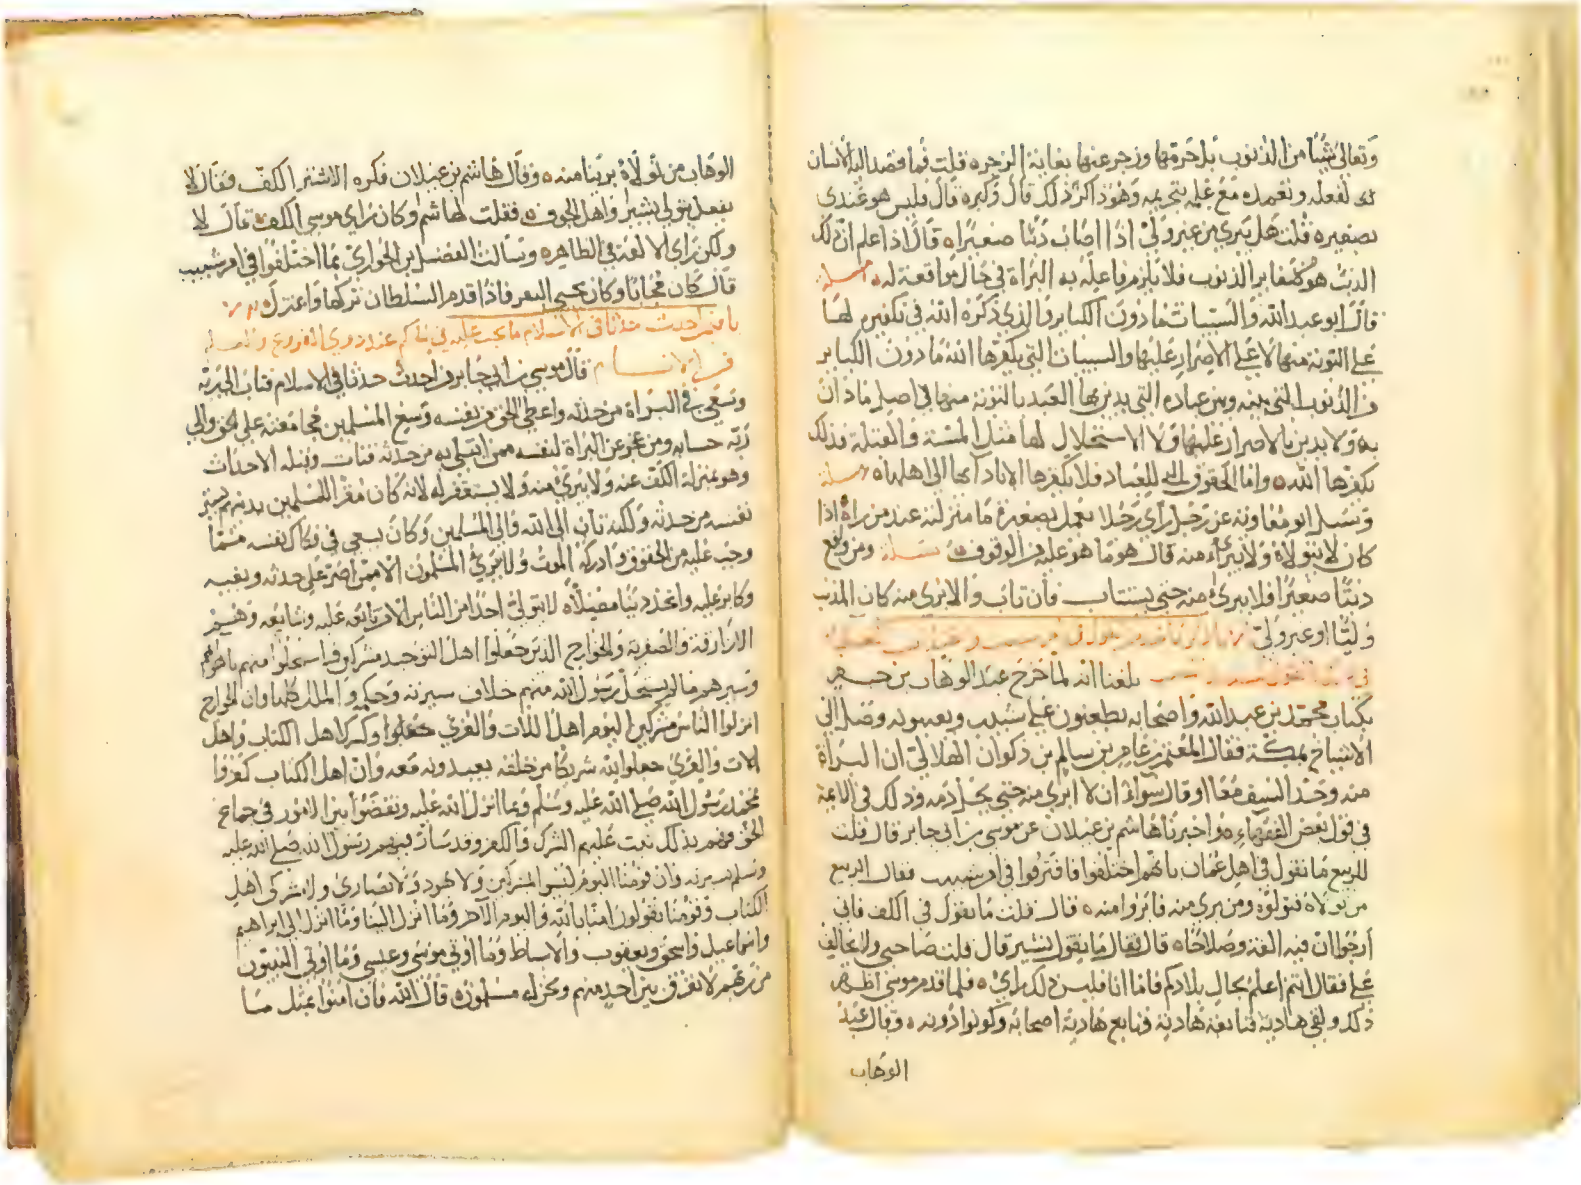 وتعالى شيئا من الذنوب بل حرمها وزجر عنها بغاية الزجر ه قلت فما قصد اليه الانسان
لفعله وتعمده مع علمه بتحريمه وهو ذاكر ذلك قال وكبره قال فليس هو عندي
بصغيره قلت هل يتبرى من غير ولي اذا اصاب ذنبا صغيرا ه قال اذا علم ان ذلك
الذنب هو من كبائر الذنوب فلا يلزم فاعله به البراة في حال مواقعة له ه مسلة
قال ابو عبد الله والسيئات ما دون الكبائر والذي ذكره الله في تكفيره لها
على التوبة منها لا على الاصرار عليها والسيئات التي يكفرها الله ما دون الكبائر
من الذنوب التي بينه وبين عباده التي يدين بها العبد بالتوبة منها في اصل ما دان
به ولا يدين بالاصرار عليها ولا الاستحلال لها مثل المسة والقبلة فذلك
يكفرها الله ه واما الحقوق التي للعباد فلا يكفرها الا اداها الى اهلها ه مسلة
وسئل ابو معاوية عن رجل راي رجلا يعمل بصغيرة ما منزلته عند من راه اذا
كان لا يتولاه ولا يبراء منه قال هو ما هو عليه من الوقوف ه مسلة ومن واقع
ذنبا صغيرا فلا يبرئ منه حتى يستتاب فان تاب والا برئ منه كان المذنب
وليا او غير ولي
بلغنا انه لما خرج عبد الوهاب بن
بكتاب محمد بن عبد الله واصحابه يطعنون على شبيب ويعيبونه وصل الى
الاشياخ بمكة فقال المعتمر بن عامر بن سالم بن ذكوان الهلالي ان البراة
منه وحد السيف معا او قال سواء ان لا ابرئ منه حتى يحل دمه وذلك في الائمة
في قول بعض الفقهاء ه واخبرنا هاشم بن غيلان عن موسى بن ابي جابر قال قلت
للربيع ما تقول في اهل عمان بانهم اختلفوا فافترقوا في امر شبيب فقال الربيع
من تولاه فتولوه ومن برئ منه فابروا منه ه قال قلت ما تقول في الكف فاني
ارجوا ان فيه الفة وصلاحا ه قال فقال ما يقول بشير قال قلت صاحبي ولا يخالف
علي فقال انتم اعلم بحال بلادكم فاما انا فليس ذلك براي ه فلما قدم موسى اظهر
ذلك ولقي هادية فتابعه هادية وتابع هادية اصحابه وكونوا دونه ه وقال عبد
الوهاب
الوهاب من تولاه برئنا منه ه وقال هاشم بن غيلان فكره الاشتر الكف فقال لا
نفعل يتولى بشير واهل الجوف ه فقلت لهاشم وكان راي موسى الكف قال لا
ولكن راي الالفة في الظاهر ه وسالت الفضل بن الحواري عما اختلفوا في امر شبيب
قال كان محابا وكان يجبي القرى فاذا قدم السلطان تركها واعتزل ه
باب من احدث حدثا في الاسلام ما يجب عليه في
قال موسى بن ابي جابر من احدث حدثا في الاسلام فتاب الى ربه
وسعى في البراة من حدثه واعطى الحق من نفسه وسع المسلمين مجامعته على الحق والى
ربه حسابه ومن عجز عن البراة لنفسه ممن ابتلي به من حدثه فتاب وقبله الاحداث
وهو بمنزلة الكف عنه ولا يبرئ منه ولا يستغفر له لانه كان مقرا للمسلمين بدينهم
نفسه من حدثه ولكنه تاب الى الله والى المسلمين وكان يسعى في فكاك نفسه مما
وجب عليه من الحقوق وادركه الموت ولا يبرئ المسلمون الا ممن اصر على حدثه وبغيه
وكابر عليه واتخذ دينا مضيلا ه لا يتولى احدا من الناس الا من تابعه عليه وشايعه وهم
الازارقة والصفرية والخوارج الذين جعلوا اهل التوحيد مشركين فاستحلوا منهم باهوائهم
وسيرهم ما لم يستحل رسول الله منهم خلاف سيرته وحكمه والملل كلها وان الخوارج
انزلوا الناس مشركين اليوم اهل اللات والعزى جعلوا وكمشركي اهل الكتاب واهل
اللات والعزى جعلوا لله شريكا من خلقه يعبدونه معه وان اهل الكتاب كفروا
بمحمد رسول الله صلى الله عليه وسلم وبما انزل الله عليه ونقضوا ابين الامور في جماع
الحق فهم بذلك نعت عليهم الشرك والكفر وقد سار فيهم رسول الله صلى الله عليه
وسلم بسيرته وان قومنا اليوم ليسوا المشركين ولا يهود ولا نصارى ولا مشركي اهل
الكتاب وقومنا يقولون امنا بالله واليوم الآخر وما انزل الينا وما انزل الى ابراهيم
واسماعيل واسحق ويعقوب والاسباط وما اوتي موسى وعيسى وما اوتي النبيون
من ربهم لا نفرق بين احد منهم ونحن له مسلمون ه قال الله فان امنوا بمثل ما